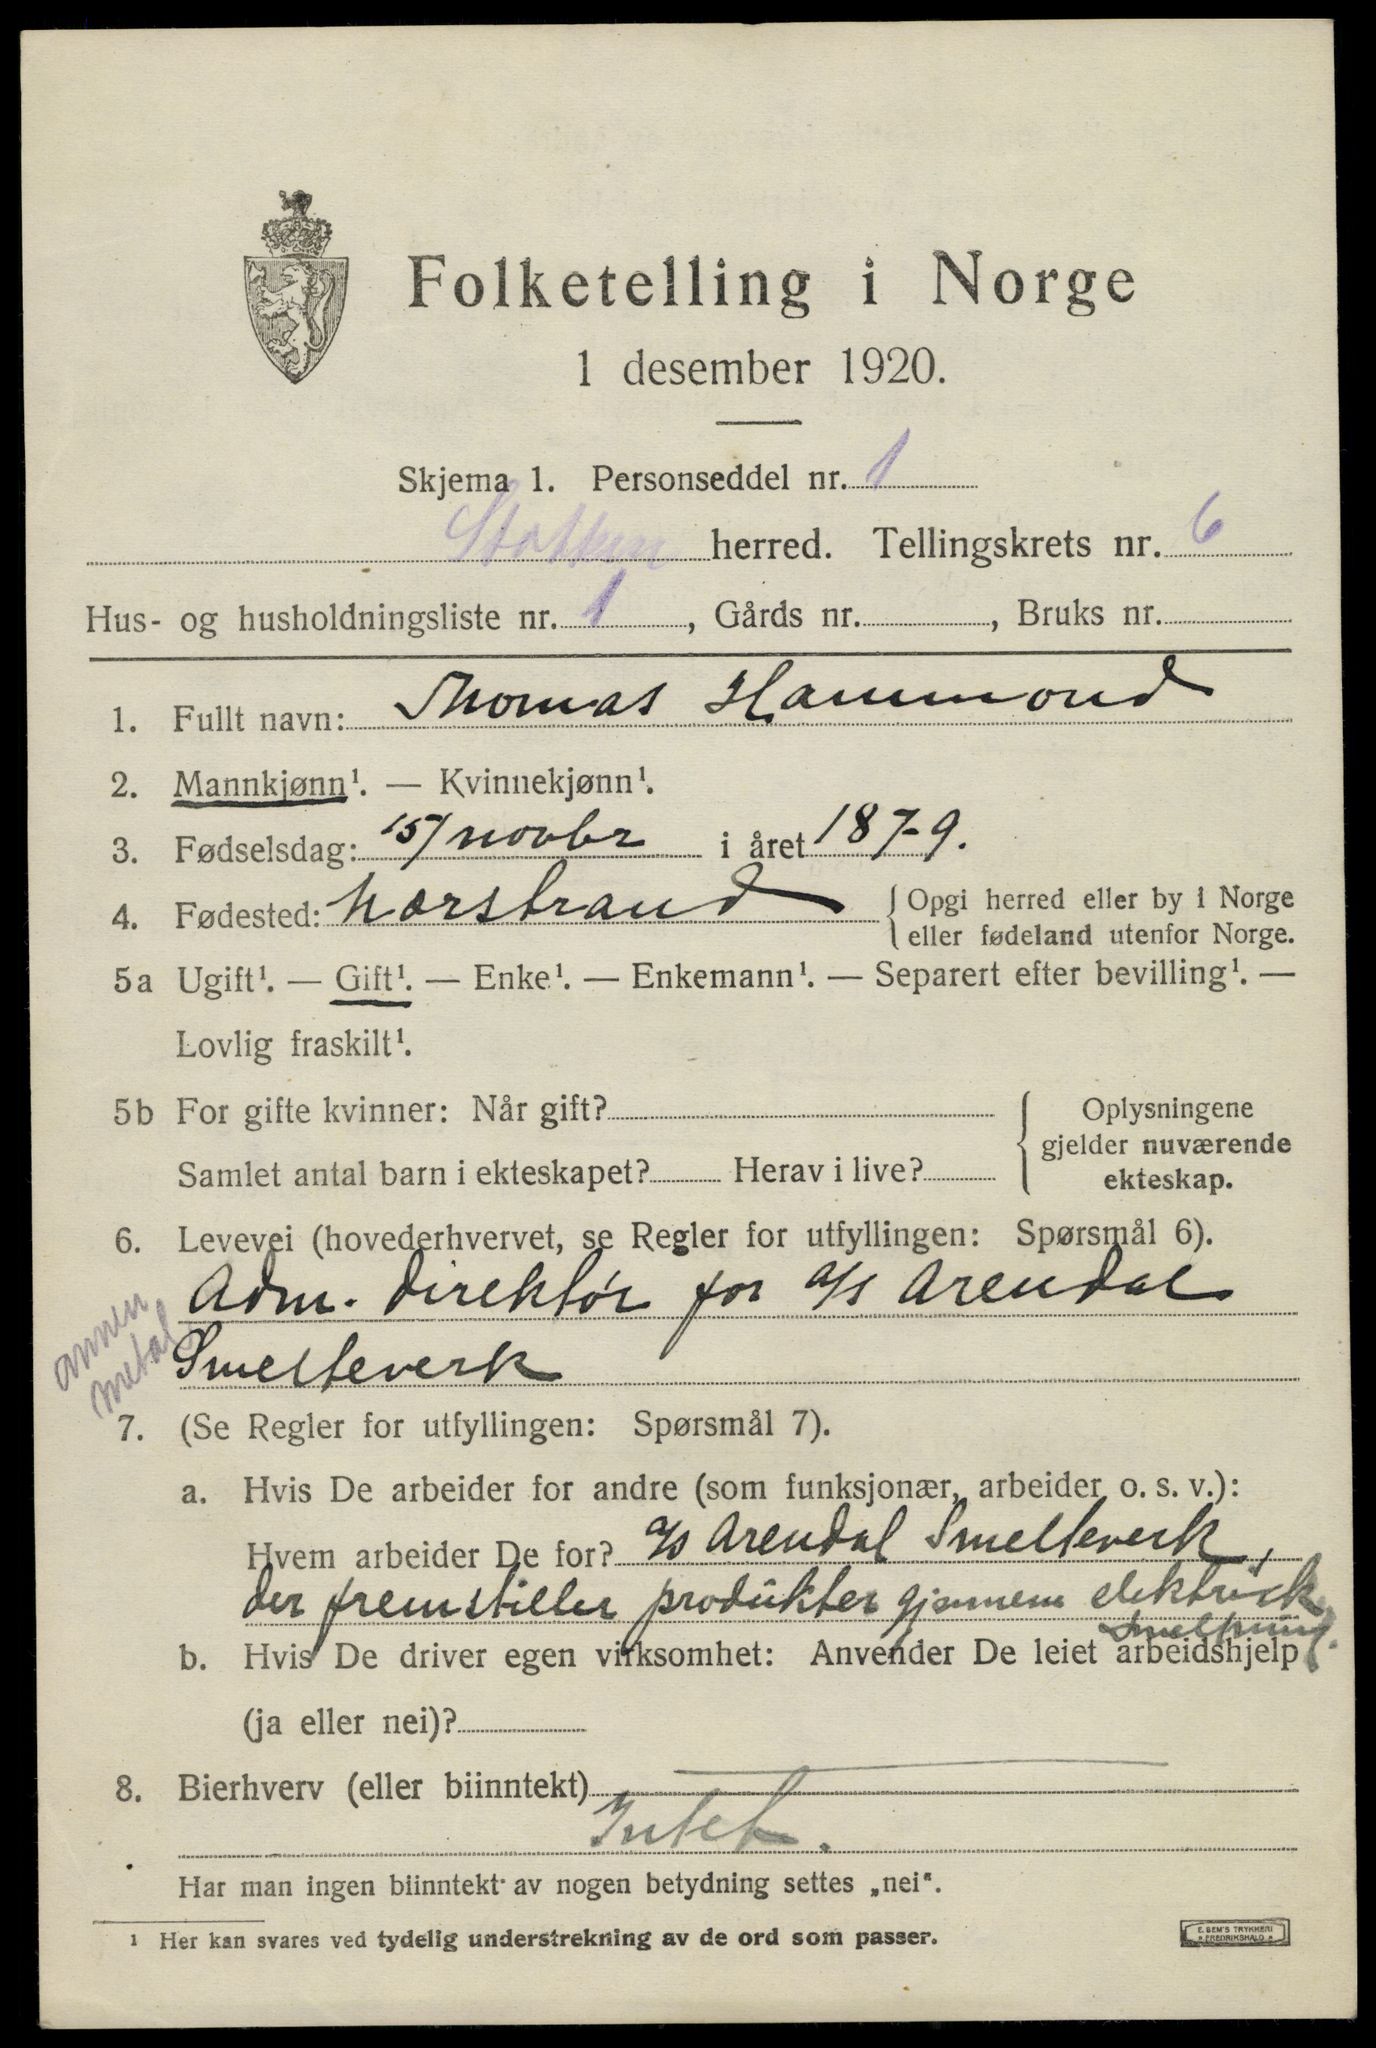 Folketelling i Norge
1 desember 1920.
Skjema 1. Personseddel nr. 1
Stokken herred. Tellingskrets nr. 6
Hus- og husholdningsliste nr. 1, Gårds nr. , Bruks nr.
1. Fullt navn: Thomas Hammond
2. Mannkjønn¹. — Kvinnekjønn¹.
3. Fødselsdag: 15/ novbr i året 1879.
4. Fødested: Nærstrand { Opgi herred eller by i Norge
eller fødeland utenfor Norge.
5a Ugift¹. — Gift¹. — Enke¹. — Enkemann¹. — Separert efter bevilling¹. —
Lovlig fraskilt¹.
5b For gifte kvinner: Når gift? { Oplysningene
gjelder nuværende
Samlet antal barn i ekteskapet? Herav i live? ekteskap.
6. Levevei (hovederhvervet, se Regler for utfyllingen: Spørsmål 6).
Adm. direktør for a/s Arendal
annen
metal
Smelteverk
7. (Se Regler for utfyllingen: Spørsmål 7).
a. Hvis De arbeider for andre (som funksjonær, arbeider o. s. v.):
Hvem arbeider De for? a/s Arendal Smelteverk,
der fremstiller produkter gjennem elektrisk
smeltning.
b. Hvis De driver egen virksomhet: Anvender De leiet arbeidshjelp
(ja eller nei)?
8. Bierhverv (eller biinntekt)
Intet.
Har man ingen biinntekt av nogen betydning settes „nei“.
¹ Her kan svares ved tydelig understrekning av de ord som passer.
E. SEM'S TRYKKERI
FREDRIKSHALD